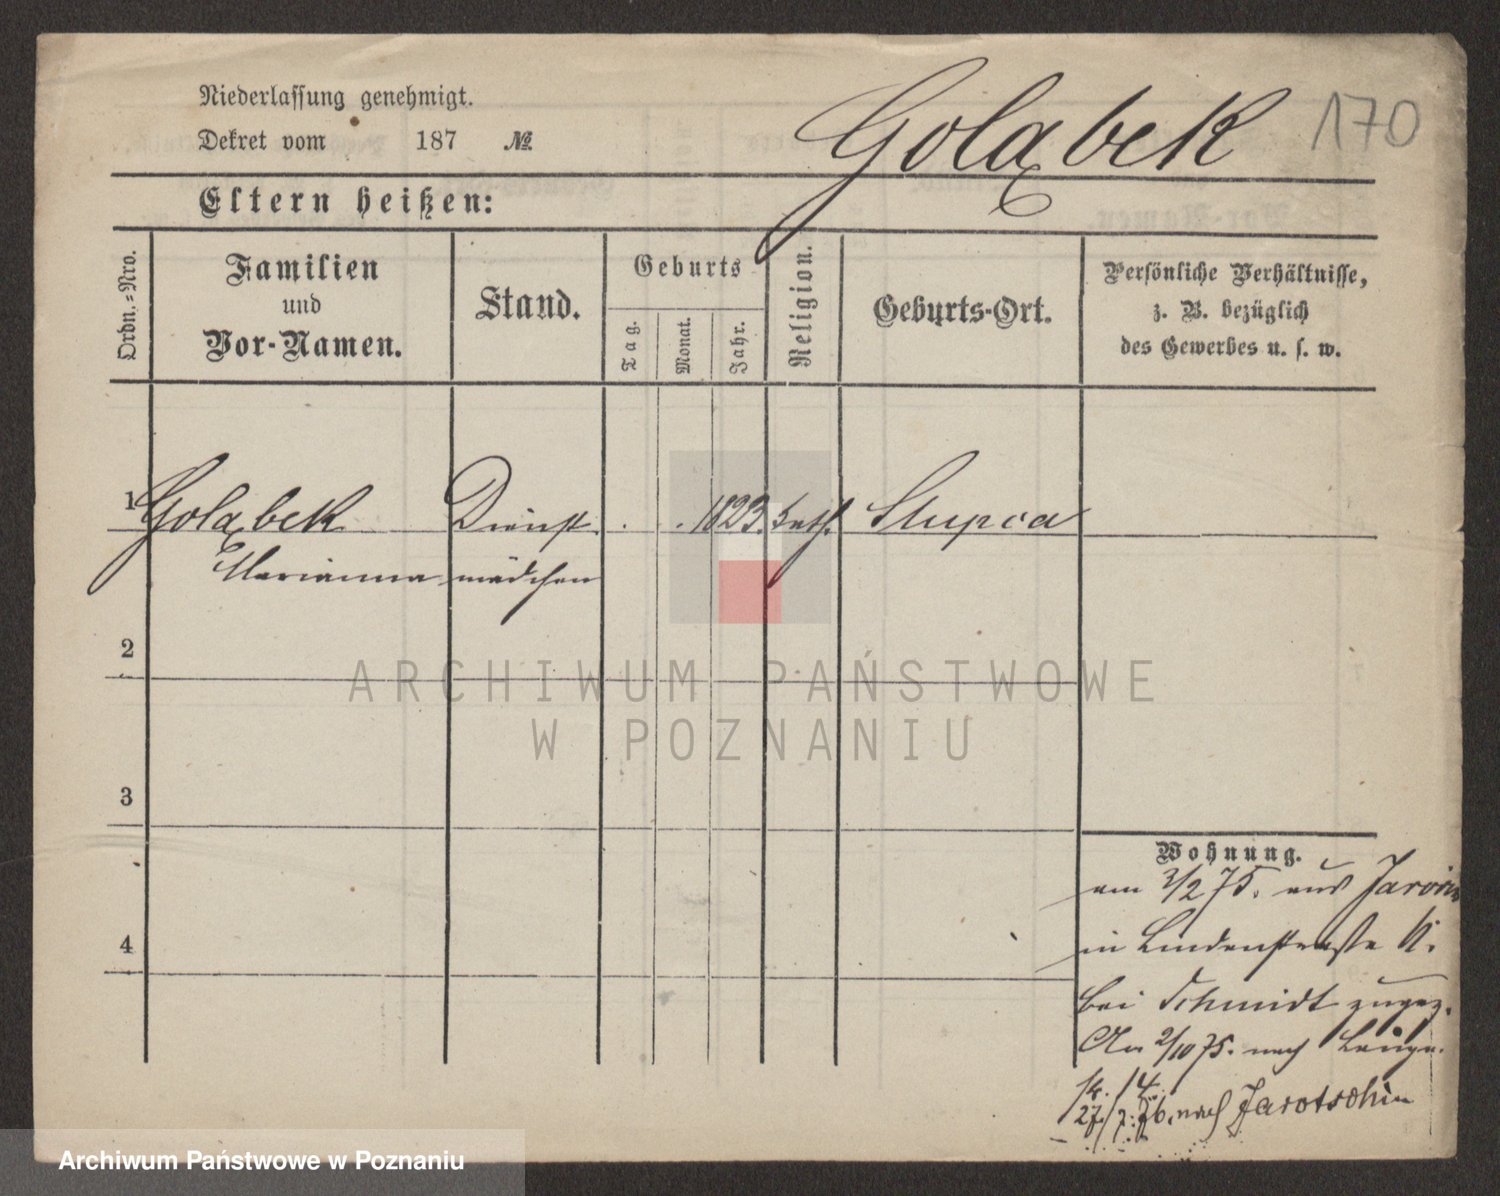 Niederlassung genehmigt.
Dekret vom 187 №
Goląbek 170
Eltern heißen:
Ordn.=Nro.
Familien
und
Vor-Namen.
Stand.
Geburts
Tag.
Monat.
Jahr.
Religion.
Geburts-Ort.
Persönliche Verhältnisse,
z. B. bezüglich
des Gewerbes u. s. w.
1 Goląbek Dienst 1823. kath. Slupca
Marianna mädchen
2
3
4
Wohnung.
am 3/2 75. aus
in Lindenstraße
bei Schmidt zugez.
2/10 75. nach
27/ 76. nach Jarotschin
ARCHIWUM PAŃSTWOWE
W POZNANIU
Archiwum Państwowe w Poznaniu